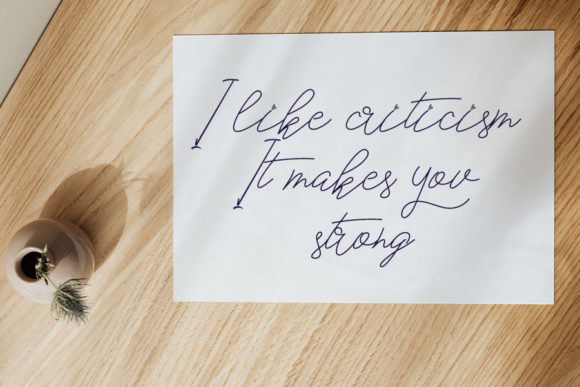 I like criticism
It makes you
strong